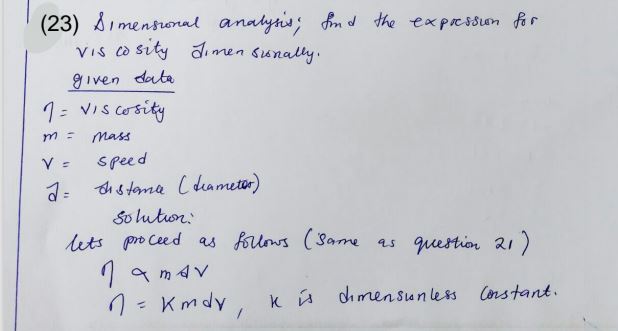 (23) Dimensional analysis; find the expression for
viscosity dimensionally.
given data
η = viscosity
m = mass
v = speed
d = distance (diameter)
Solution:
lets proceed as follows (same as question 21)
η α mdv
η = Kmdv, K is dimensunless constant.